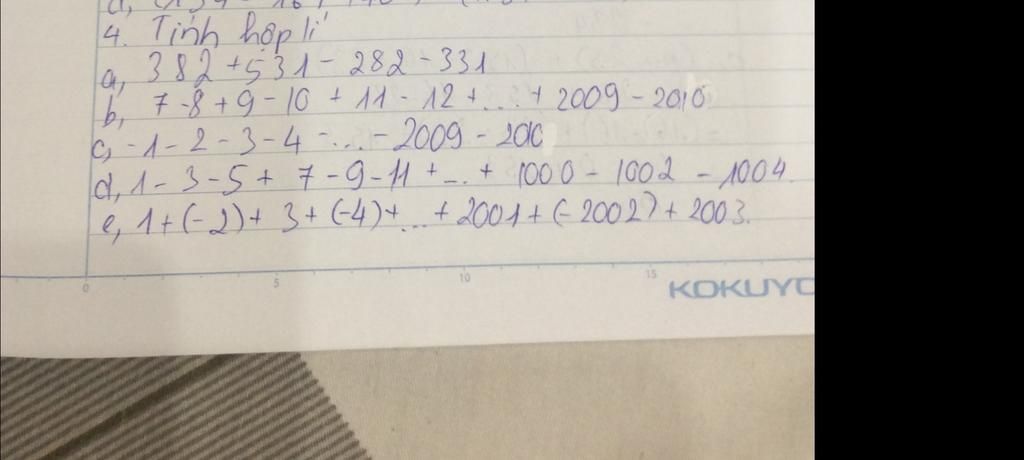 4. Tính hợp lí
a, 382 + 531 - 282 - 331
b, 7 - 8 + 9 - 10 + 11 - 12 + ... + 2009 - 2010
c, - 1 - 2 - 3 - 4 - ... - 2009 - 2010
d, 1 - 3 - 5 + 7 - 9 - 11 + ... + 1000 - 1002 - 1004
e, 1 + (-2) + 3 + (-4) + ... + 2001 + (-2002) + 2003.
0 5 10 15
KOKUYO